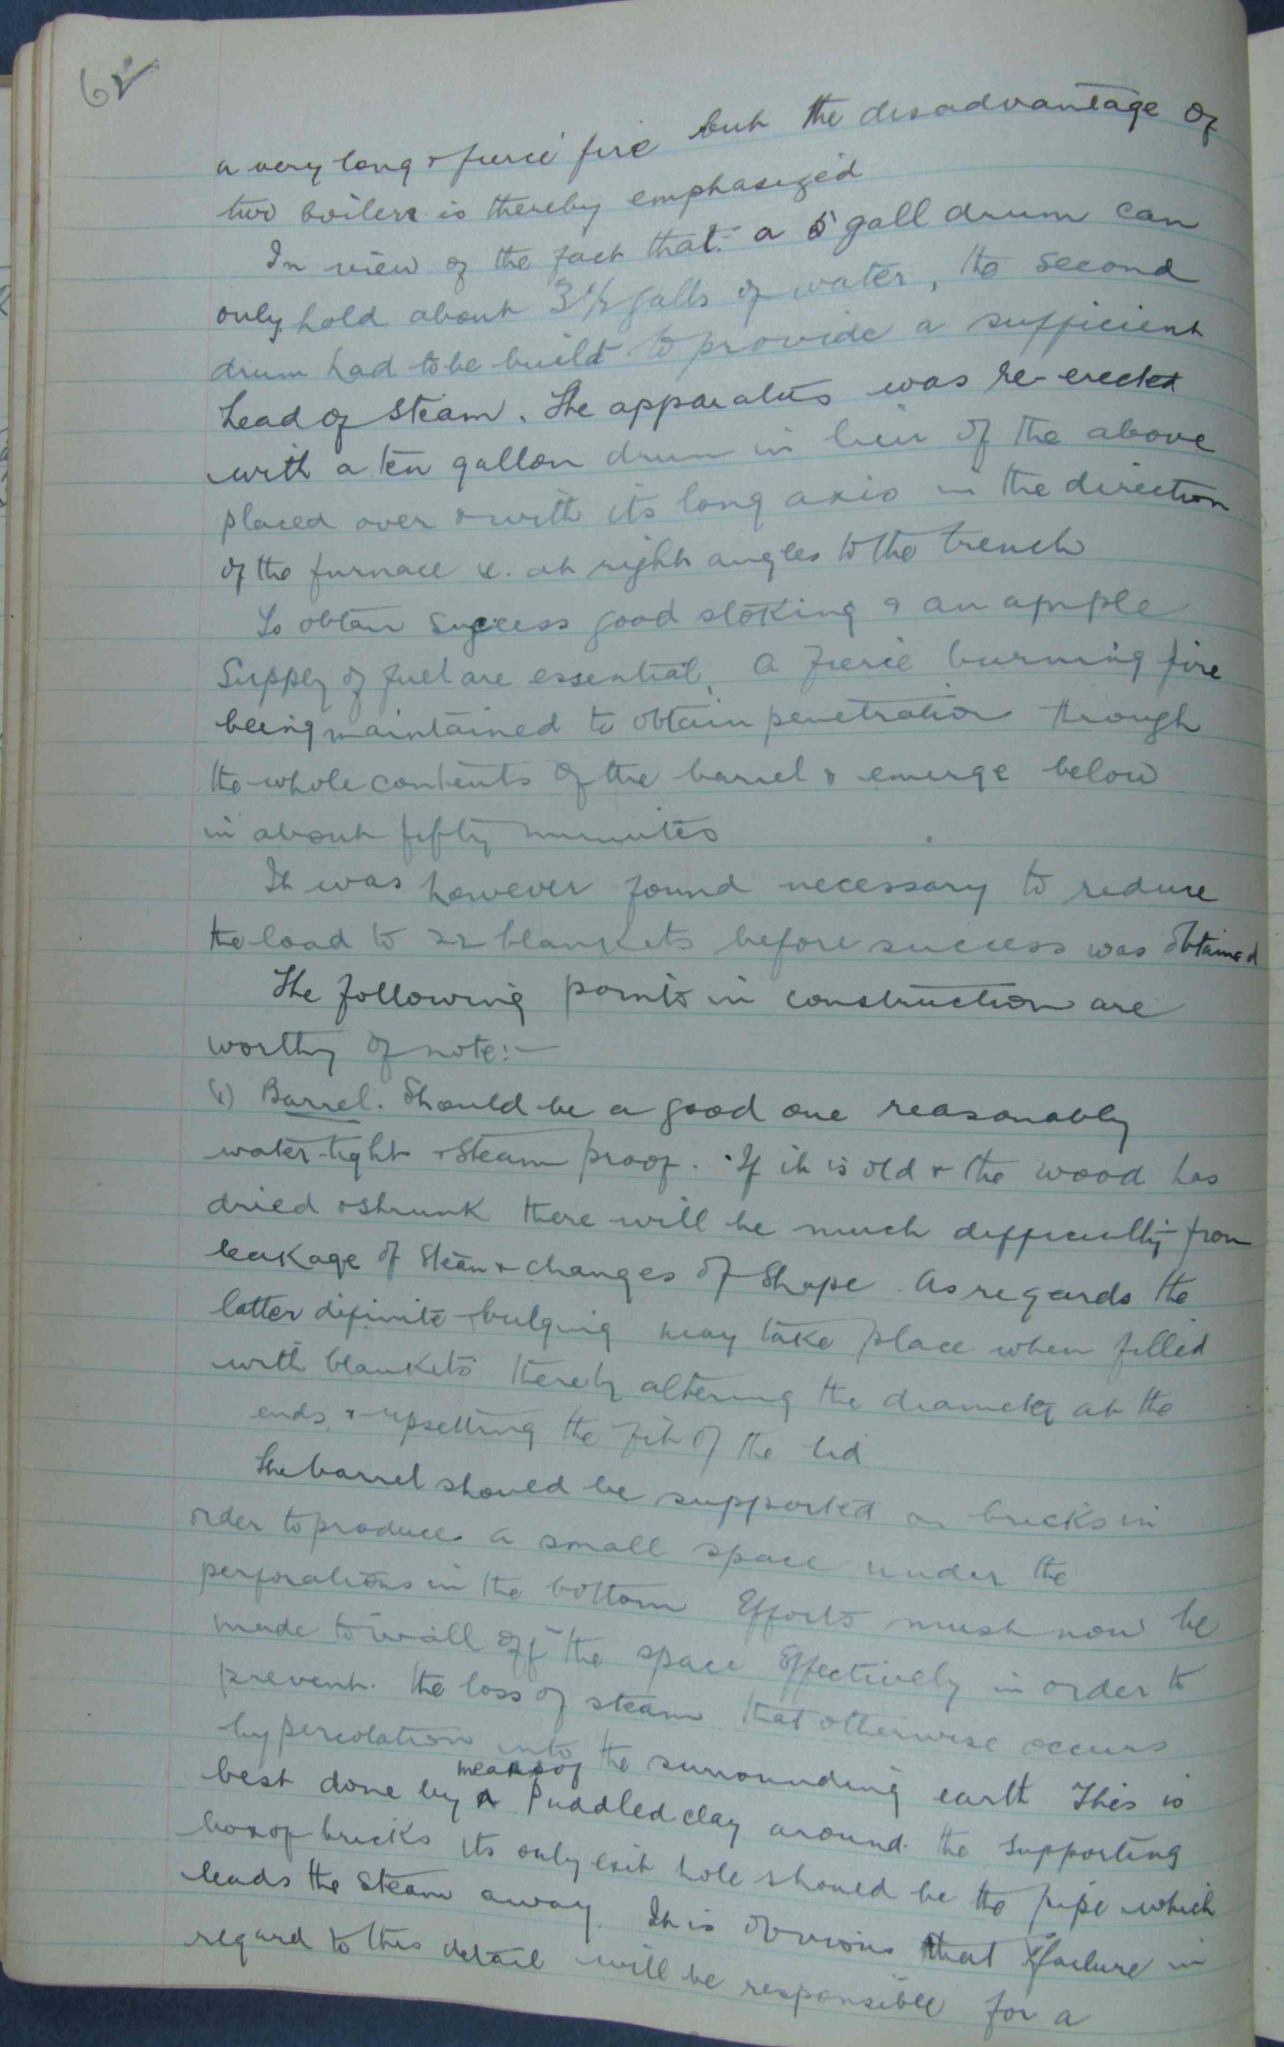 62
a very long & fierce fire but the disadvantage of
two boilers is thereby emphasized
In view of the fact that a 5 gall drum can
only hold about 3 1/2 galls of water, the second
drum had to be built to provide a sufficient
head of steam. The apparatus was re-erected
with a ten gallon drum in lieu of the above
placed over & with its long axis in the direction
of the furnace ie. at right angles to the trench
To obtain success good stoking & an ample
supply of fuel are essential, a fierce burning fire
being maintained to obtain penetration through
the whole contents of the barrel & emerge below
in about fifty minutes
It was however found necessary to reduce
the load to 22 blankets before success was obtained
The following points in construction are
worthy of note:-
(1) Barrel. Should be a good one reasonably
water-tight & steam proof. If it is old & the wood has
dried & shrunk there will be much difficulty from
leakage of steam & changes of shape. As regards the
latter difinite bulging may take place when filled
with blankets thereby altering the diameter at the
ends, & upsetting the fit of the lid
The barrel should be supported on bricks in
order to produce a small space under the
perforations in the bottom Efforts must now be
made to wall off the space effectively in order to
prevent the loss of steam that otherwise occurs
by percolation into the surrounding earth This is
best done by means of puddled clay around the supporting
box of bricks Its only exit hole should be the pipe which
leads the steam away. It is obvious that failure in
regard to this detail will be responsible for a